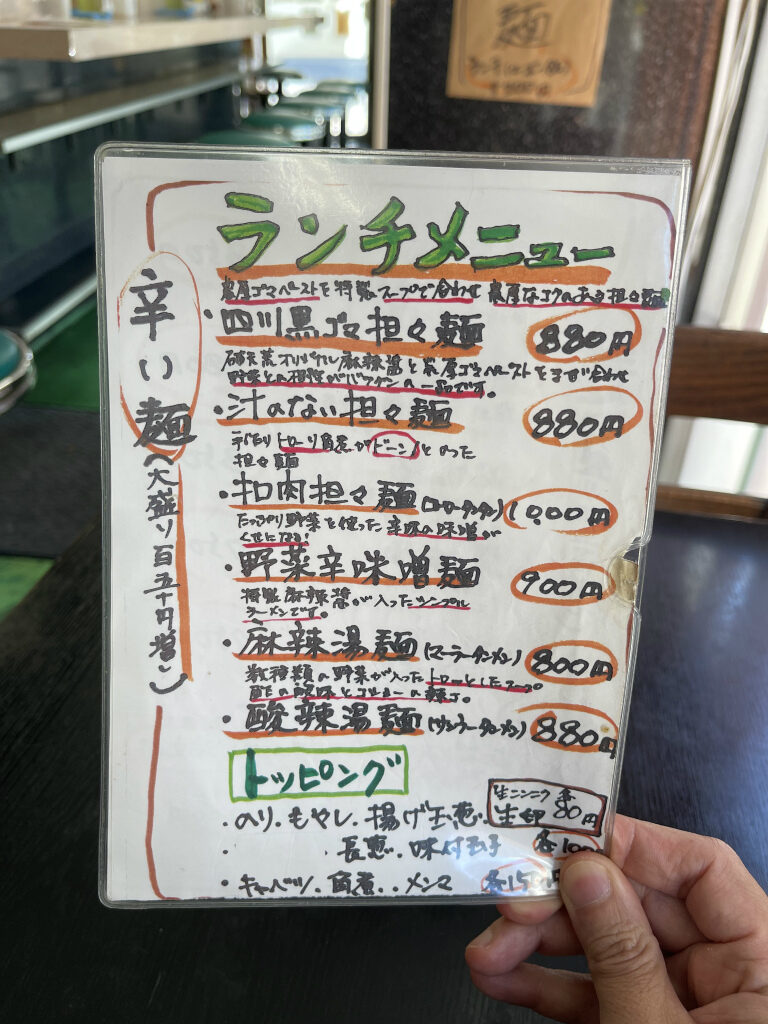 麺
ランチメニュー
辛い麺(大盛り百五十円増し)
濃厚ゴマペーストを特製スープで合わせ 濃厚なコクのある担々麺
・四川黒ゴマ担々麺 880円
破天荒オリジナル麻辣醤と濃厚ゴマペーストをまぜ合わせ
野菜との相性がバツグンの一品です。
・汁のない担々麺 880円
デッカイトローリ角煮がドーン!とのった
担々麺
・扣肉担々麺(コーロータンタン) 1000円
たっぷり野菜を使った 辛味の味噌が
くせになる!
・野菜辛味噌麺 900円
特製麻辣醤が入ったシンプル
ラーメンです。
・麻辣湯麺(マーラータンメン) 800円
数種類の野菜が入ったトローとしたスープ
酢の酸味とコショーの辣さ。
・酸辣湯麺(サンラータンメン) 880円
トッピング
生ニンニク 各80円
・のり・もやし・揚げ玉葱・
・長葱・味付玉子 各100
・キャベツ・角煮・・メンマ 各150円